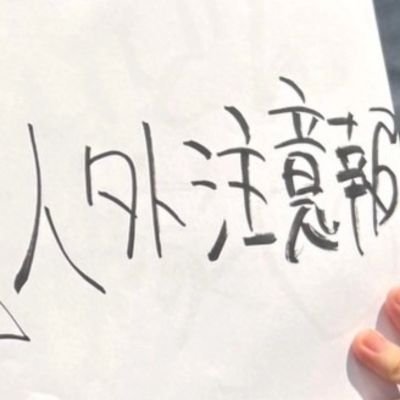 人外注意報